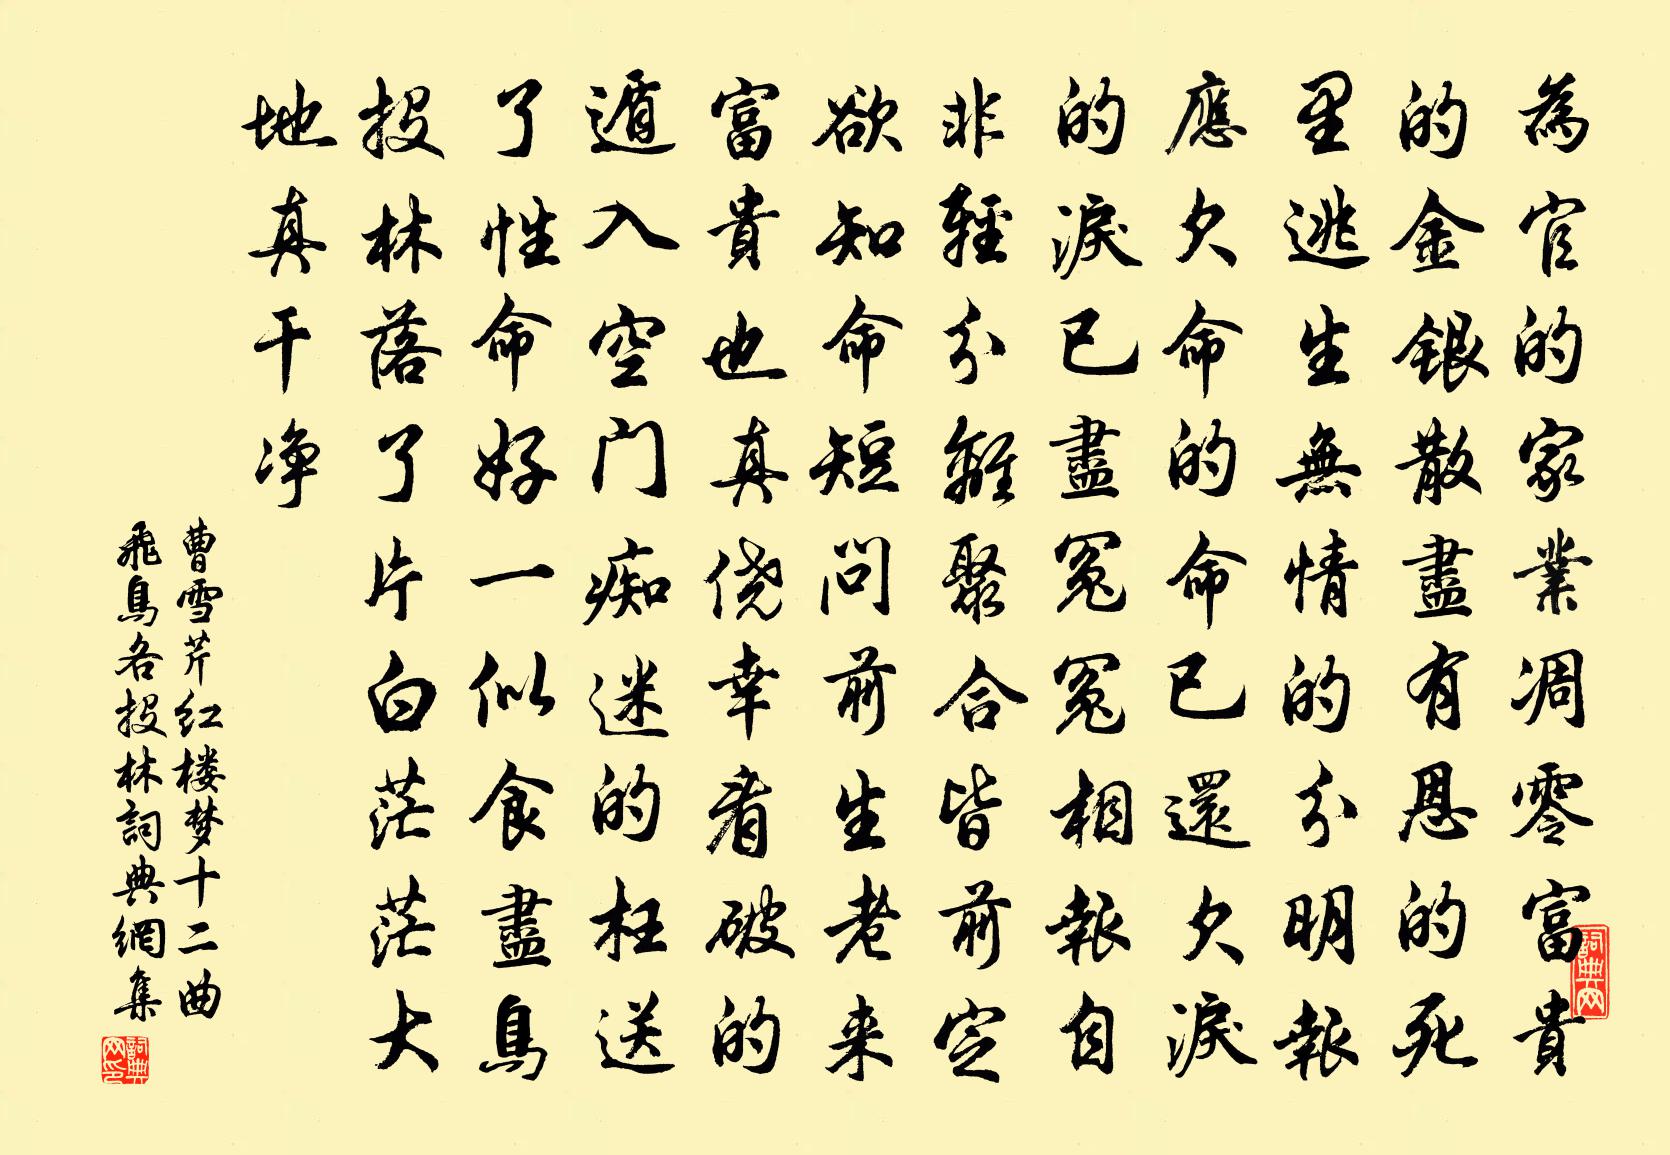 為官的家業凋零富貴
的金銀散盡有恩的死
里逃生無情的分明報
應欠命的命已還欠淚
的淚已盡冤冤相報自
非輕分離聚合皆前定
欲知命短问前生老来
富貴也真侥幸看破的
遁入空门痴迷的枉送
了性命好一似食盡鳥
投林落了片白茫茫大
地真干净
曹雪芹红楼梦十二曲
飛鳥各投林詞典網集
詞典网
詞典网印